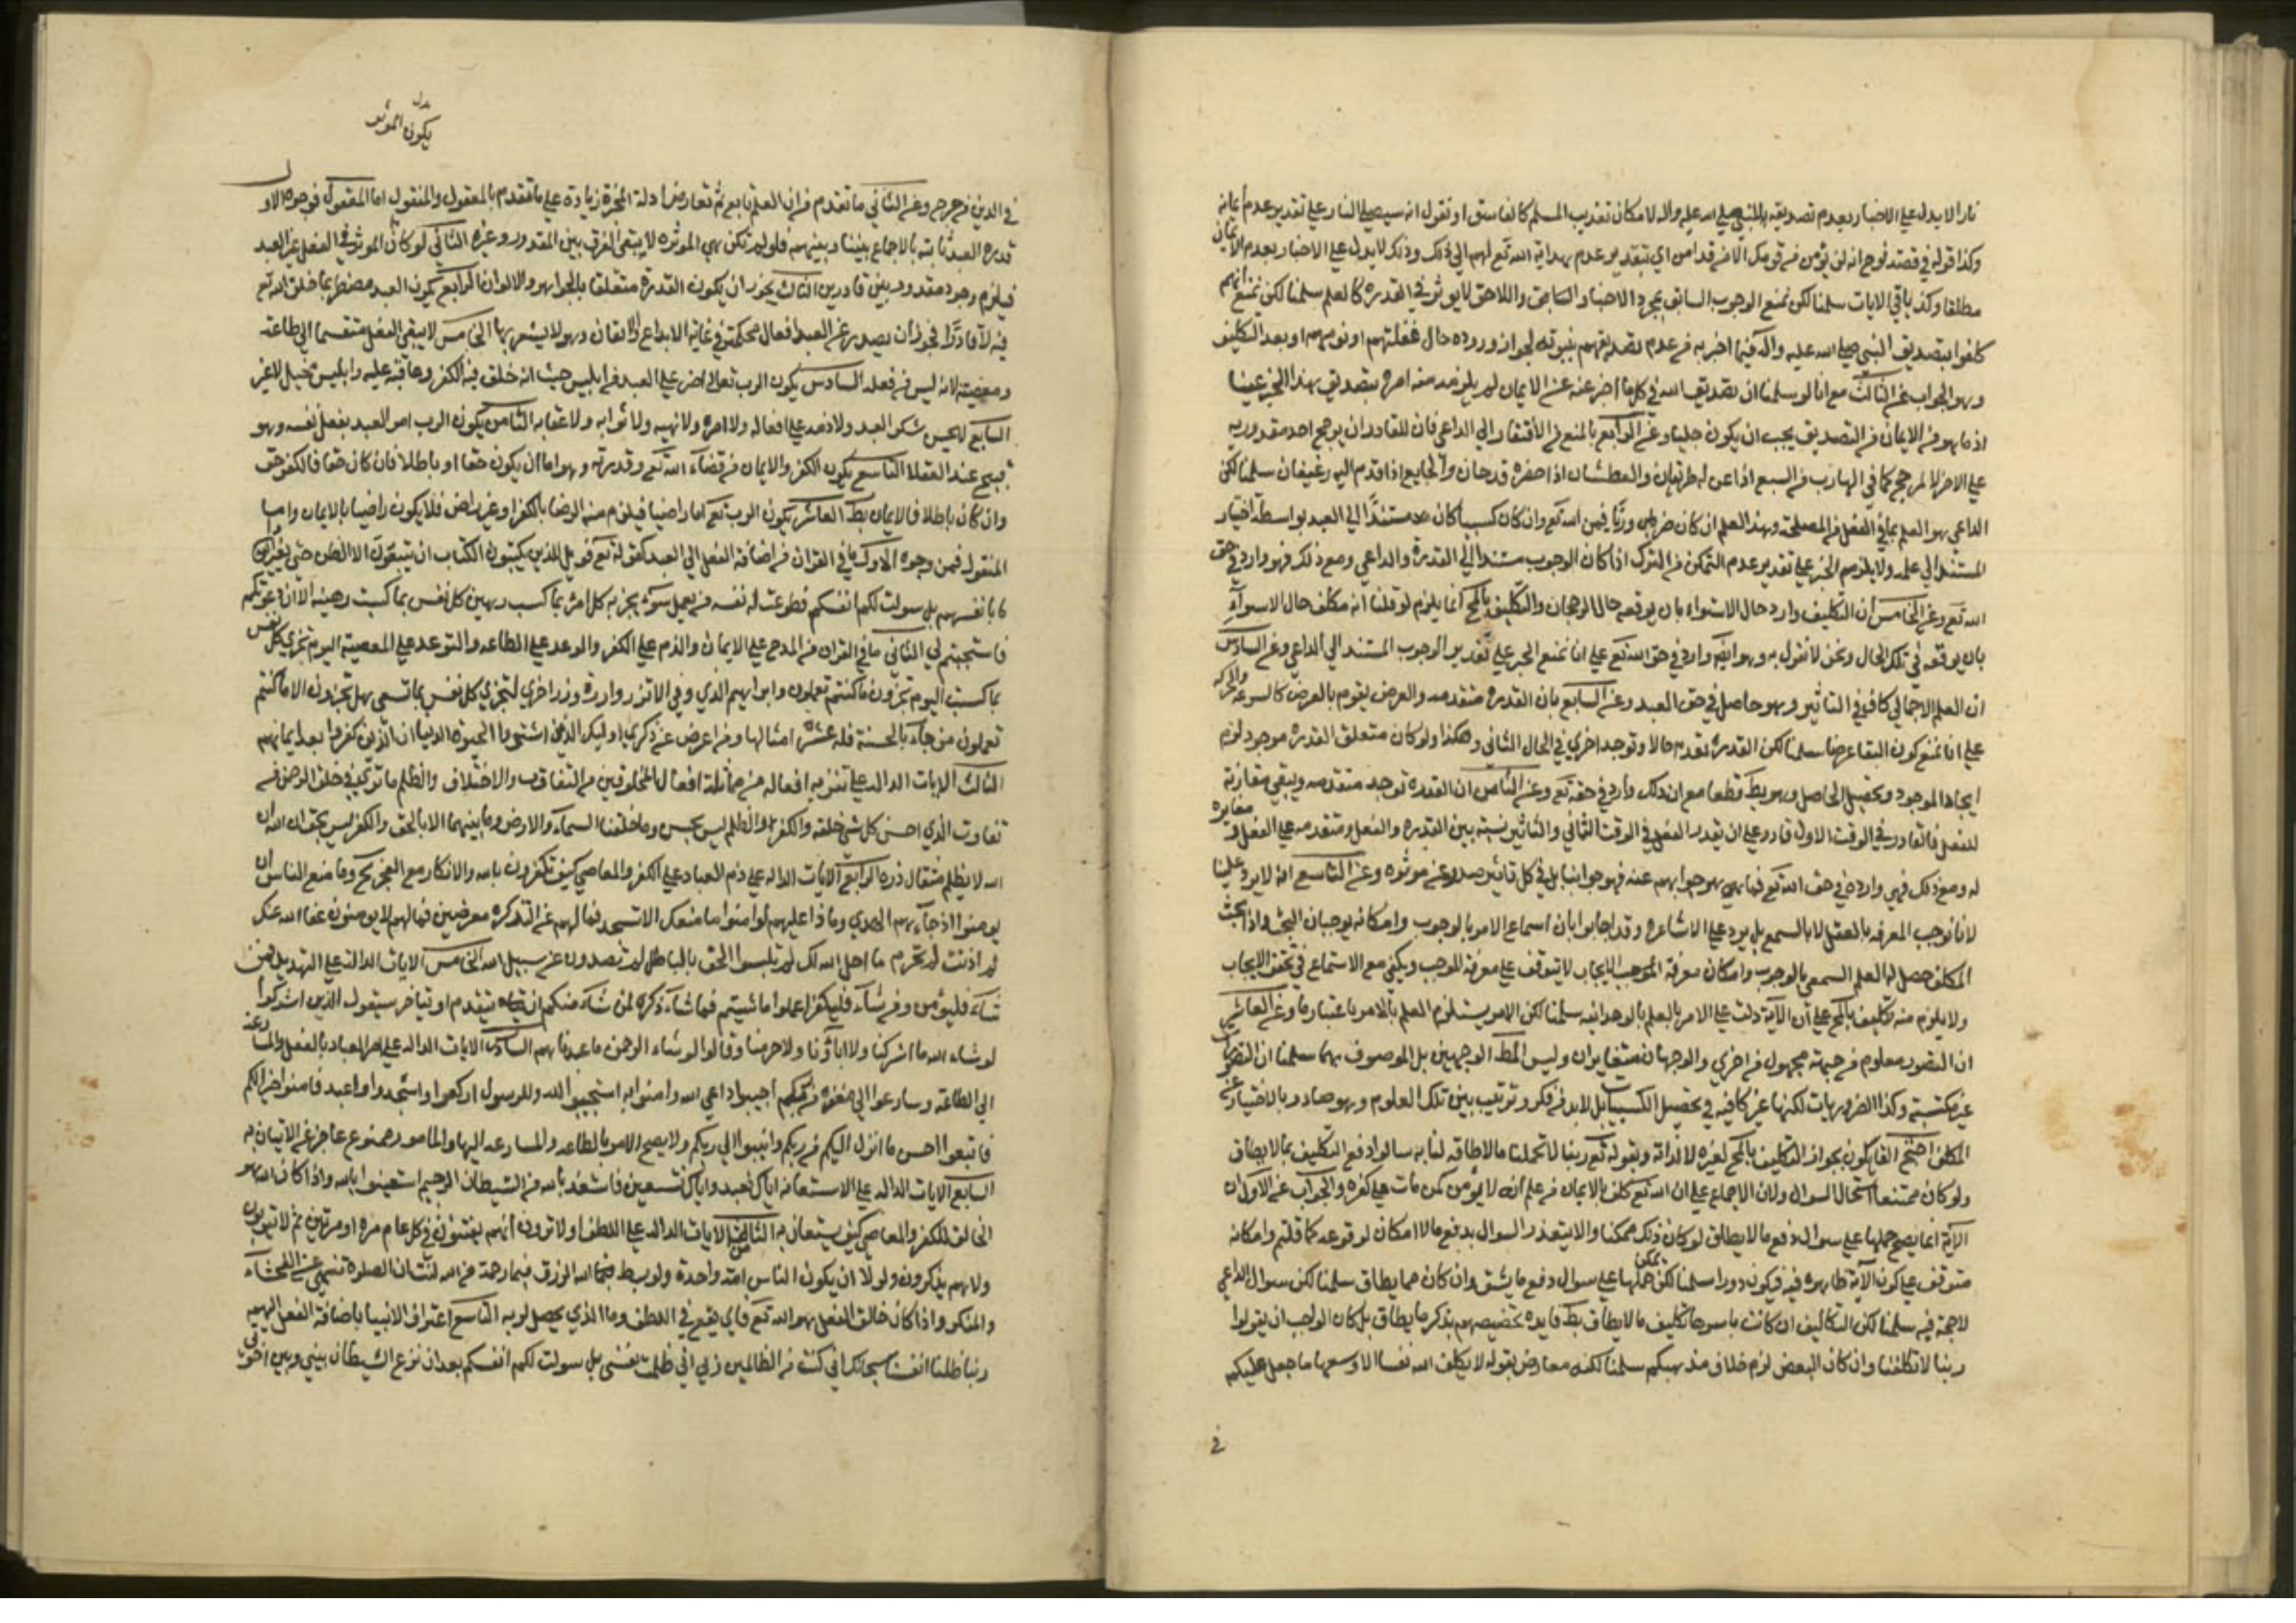 نارا لا يدل على الاخبار بعدم تصديقه للنبي صلى الله عليه واله لامكان تعذيب المسلم كالفاسق او نقول انه سيصلى النار على تقدير عدم ايمانه
وكذا قوله في قصة نوح انه لن يؤمن من قومك الا من قد امن اي بتقدير عدم هداية الله تع لهم الى ذلك وذلك لا يدل على الاخبار بعدم الايمان
مطلقا وكذا باقي الايات سلمنا لكن نمنع الوجوب السابق بمجرد الاخبار السابق واللاحق لا يوثر في القدرة كالعلم سلمنا لكن نمنع انهم
كلفوا بتصديق النبي صلى الله عليه واله فيما اخبر به من عدم تصديقهم بنبوته لجواز وروده حال غفلتهم او نومهم او بعد التكليف
وهو الجواب عن الثالث مع انا لو سلمنا ان تصديق الله في كل ما اخبر عنه من الايمان لم يلزم منه امره بتصديق هذا الخبر عينا
اذ ما هو من الايمان من التصديق يجب ان يكون جليا وعن الرابع بالمنع من الافتقار الى الداعي فان للقادر ان يرجح احد مقدوريه
على الاخر لا لمرجح كما في الهارب من السبع اذا عن له طريقان والعطشان اذا حضره قدحان والجايع اذا قدم اليه رغيفان سلمنا لكن
الداعي هو العلم بما في الفعل من المصلحة وهذا العلم ان كان ضروريا فمن الله تع وان كان كسبيا كان مستندا الى العبد بواسطة اختيار
المستند الى علمه ولا يلزم الجبر على تقدير عدم التمكن من الترك اذا كان الوجوب مستندا الى القدرة والداعي ومع ذلك فهو وارد في حق
الله تع وعن الخامس ان التكليف وارد حال الاستواء بان يوقعه حال الرجحان والتكليف بالمح انما يلزم لو قلنا انه مكلف حال الاستواء
بان يوقعه في تلك الحال ونحن لا نقول به وهو ايضا وارد في حق الله تع على انا نمنع الجبر على تقدير الوجوب المستند الى الداعي وعن السادس
ان العلم الاجمالي كاف في التاثير وهو حاصل في حق العبد وعن السابع بان القدرة متقدمة والعرض يقوم بالعرض كالسرعة والحركة
على انا نمنع كون البقا عرضا سلمنا لكن القدرة تقدم حالا وتوجد اخرى في الحال الثاني وهكذا ولو كان متعلق القدرة موجود لزم
ايجاد الموجود وتحصيل الحاصل وهو بط قطعا مع ان ذلك وارد في حقه تع وعن الثامن ان القدرة توجد متقدمة ويبقى مقارنة
للفعل فالقادر في الوقت الاول قادر على ان يقدر الفعل في الوقت الثاني والتاثير نسبة بين القدرة والفعل ومتقدمة على الفعل مغايرة
له ومع ذلك فهي واردة في حق الله تع فما هو جوابهم عنه فهو جوابنا بل في كل تاثير صدر عن موثره وعن التاسع انه لا يرد علينا
لانا نوجب المعرفة بالعقل لا بالسمع بل يرد على الاشاعرة وقد اجابوا بان اسماع الامر بالوجوب وامكانه يوجبان البحث واذا بحث
المكلف حصل له العلم السمعي بالوجوب وامكان معرفة الموجب الايجاب لا تتوقف على معرفة الموجب ويكفي مع الاستماع في تحقق الايجاب
ولا يلزم منه تكليف بالمح على ان الاية دلت على الامر بالعلم بالوحدانية سلمنا لكن الامر يستلزم العلم بالامر باعتبار ما وعن العاشر
ان التصور معلوم من جهة مجهول من اخرى والوجهان متغايران وليس المط الوجهين بل الموصوف بهما سلمنا ان التصورات
غير مكتسبة وكذا الضروريات لكنها غير كافية في تحصيل الكسبيات بل لابد من فكر وترتيب بين تلك العلوم وهو صادر بالاختيار عن
المكلف احتج القايلون بجواز التكليف بالمح لغيره لا لذاته وبقوله تع ربنا لا تحملنا ما لا طاقة لنا به سالوا دفع التكليف بما لا يطاق
ولو كان ممتنعا استحال السوال ولان الاجماع على ان الله تع كلف بالايمان من علم انه لا يؤمن كمن مات على كفره والجواب عن الاول ان
الاية انما يصح حملها على سوال دفع ما لا يطاق لو كان ذلك ممكنا والا لتعذر السوال بدفع ما لا امكان لوقوعه كما قلتم وامكانه
متوقف على كون الاية ظاهرة فيه فيكون دورا سلمنا لكن يمكن حملها على سوال دفع ما يشق وان كان مما يطاق سلمنا لكن سوال الداعي
لا حجة فيه سلمنا لكن التكاليف ان كانت باسرها تكليف ما لا يطاق بط فايدة تخصيصهم بذكر ما يطاق بل كان الواجب ان يقولوا
ربنا لا تكلفنا وان كان البعض لزم خلاف مذهبكم سلمنا لكنه معارض بقوله لا يكلف الله نفسا الا وسعها ما جعل عليكم
في
بدل
يكون الموثر
في الدين من حرج وعن الثاني ما تقدم من ان العلم تابع ثم تعارض ادلة المجبرة زيادة على ما تقدم بالمعقول والمنقول اما المعقول فوجوه الاول
قدرة العبد ثابتة بالاجماع بيننا وبينهم فلو لم تكن هي الموثرة لا يبقى الفرق بين المقدور وغيره الثاني لو كان الموثر في الفعل غير العبد
فيلزم وجود مقدور بين قادرين الثالث يجوز ان يكون القدرة متعلقا بالجواهر والالوان الرابع يكون العبد مضطرا بما خلق الله تع
فيه لا قادرا فجوز ان يصدر عن العبد افعال محكمة في غاية الابداع والاتقان وهو لا يشعر بها الخامس لا يبقى الفعل منقسما الى طاعة
ومعصية لانه ليس من فعله السادس يكون الرب تعالى اضر على العبد من ابليس حيث انه خلق فيه الكفر وعاقبه عليه وابليس مخيل لا غير
السابع لا يحسن شكر العبد ولا ذمه على افعاله ولا امره ولا نهيه ولا ثوابه ولا عقابه الثامن يكون الرب امر العبد بفعل نفسه وهو
قبيح عند العقلا التاسع يكون الكفر والايمان من قضاء الله تع وقدرته وهو اما ان يكون حقا او باطلا فان كان حقا فالكفر حق
وان كان باطلا فالايمان بط العاشر يكون الرب تع اما راضيا فيلزم منه الرضا بالكفر او غير راض فلا يكون راضيا بالايمان واما
المنقول فمن وجوه الاول ما في القران من اضافة الفعل الى العبد كقوله تع فويل للذين يكتبون الكتاب ان يتبعون الا الظن حتى يغيروا
ما بانفسهم بل سولت لكم انفسكم فطوعت له نفسه من يعمل سوءا يجز به كل امرئ بما كسب رهين كل نفس بما كسبت رهينة الا ان دعوتكم
فاستجبتم لي الثاني ما في القران من المدح على الايمان والذم على الكفر والوعد على الطاعة والتوعد على المعصية اليوم تجزى كل نفس
بما كسبت اليوم تجزون ما كنتم تعملون وابراهيم الذي وفى الا تزر وازرة وزر اخرى لتجزى كل نفس بما تسعى هل تجزون الا ما كنتم
تعملون من جاء بالحسنة فله عشر امثالها ومن اعرض عن ذكري اوليك الذين اشتروا الحيوة الدنيا ان الذين كفروا بعد ايمانهم
الثالث الايات الدالة على تنزيه افعاله من مماثلة افعال المخلوقين من التفاوت والاختلاف والظلم ما ترى في خلق الرحمن من
تفاوت الذي احسن كل شي خلقه والكفر والظلم ليس بحسن وما خلقنا السماء والارض وما بينهما الا بالحق والكفر ليس بحق ان الله
ان الله لا يظلم مثقال ذرة الرابع الايات الدالة على ذم العباد على الكفر والمعاصي كيف تكفرون بالله والانكار مع العجز مح وما منع الناس ان
يومنوا اذ جاءهم الهدى وماذا عليهم لو امنوا ما منعك الا تسجد فما لهم عن التذكرة معرضين فما لهم لا يومنون عفا الله عنك
لم اذنت لم تحرم ما احل الله لك لم تلبسوا الحق بالباطل لم تصدون عن سبيل الله الخامس الايات الدالة على التهديد فمن
شاء فليؤمن ومن شاء فليكفر اعملوا ما شيتم فما شاء ذكره لمن شاء منكم ان يتقدم او يتاخر سيقول الذين اشركوا
لو شاء الله ما اشركنا ولا اباؤنا ولا حرمنا وقالوا لو شاء الرحمن ما عبدناهم السادس الايات الدالة على امر العباد بالفعل والمسارعة
الى الطاعة وسارعوا الى مغفرة من ربكم اجيبوا داعي الله وامنوا به استجيبوا لله وللرسول اركعوا واسجدوا واعبدوا فامنوا خيرا لكم
فاتبعوا احسن ما انزل اليكم من ربكم وانيبوا الى ربكم ولا يصح الامر بالطاعة والمسارعة اليها والمامور ممنوع عاجز عن الاتيان به
السابع الايات الدالة على الاستعانة اياك نعبد واياك نستعين فاستعذ بالله من الشيطان الرجيم استعينوا بالله واذا كان الله هو
الخالق للكفر والمعاصي كيف يستعان به الثامن الايات الدالة على اللطف اولا ترون انهم يفتنون في كل عام مرة او مرتين ثم لا يتوبون
ولا هم يذكرون ولولا ان يكون الناس امة واحدة ولو بسط الله الرزق فبما رحمة من الله لنت ان الصلوة تنهى عن الفحشاء
والمنكر واذا كان خالق الفعل هو الله تع فاي يقع في اللطف وما الذي يحصل لو به التاسع اعتراف الانبيا باضافة الفعل اليهم
ربنا ظلمنا انفسنا سبحانك اني كنت من الظالمين رب اني ظلمت نفسي بل سولت لكم انفسكم بعد ان نزغ الشيطان بيني وبين اخوتي